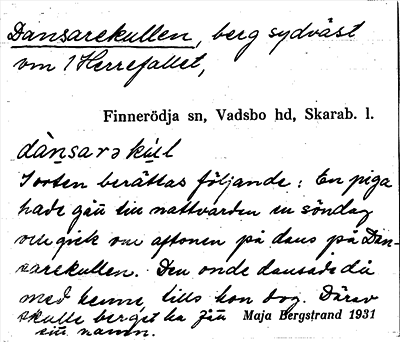 Dansarekullen, berg sydväst
om 1 Herrefallet,
Finnerödja sn, Vadsbo hd, Skarab. l.
dànsarə kùl̥l
I orten berättas följande: En piga
hade gått till nattvarden en söndag
och gick om aftonen på dans på Dan-
sarekullen. Den onde dansade då
med henne, tills hon dog. Därav
skulle berget ha fått Maja Bergstrand 1931
sitt namn.